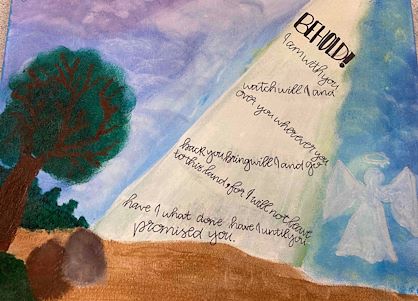 BEHOLD!
I am with you
watch will I and
over you wherever you
go
back you bring will I and
to this land, for I will not leave
have I what done have I until you
promised you.